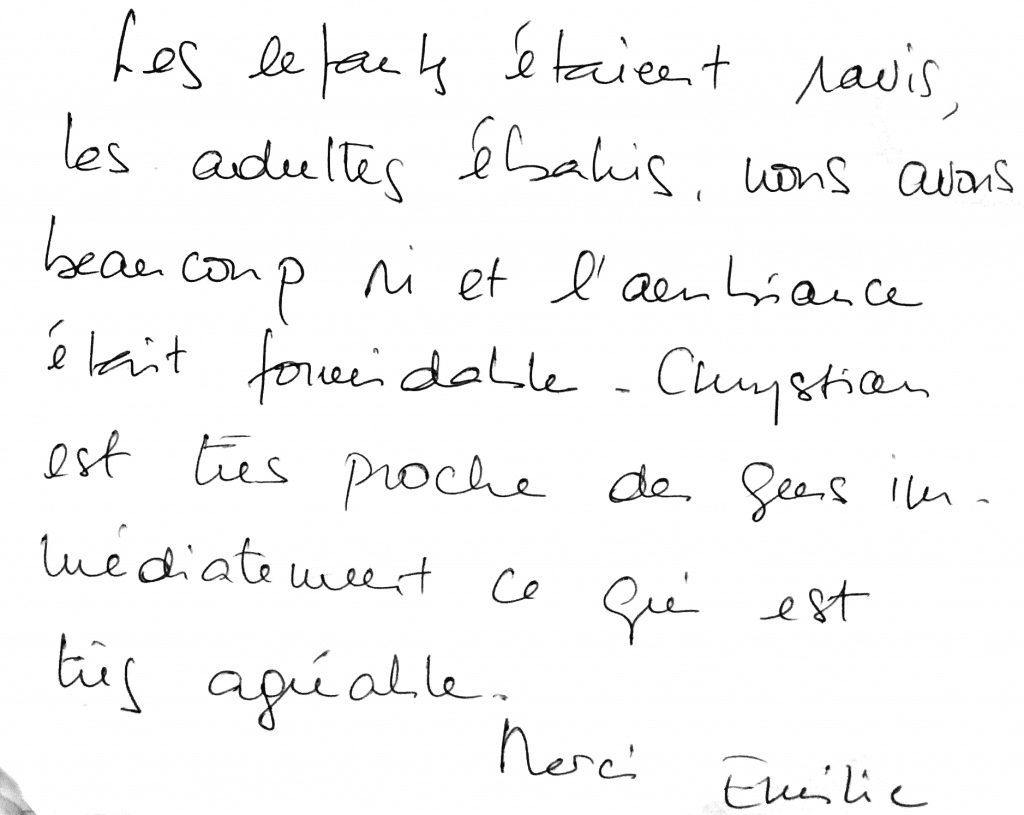 Les enfants étaient ravis,
les adultes ébahis, nous avons
beaucoup ri et l'ambiance
était formidable - Chrystian
est très proche des gens im-
médiatement ce qui est
très agréable.
Merci Emilie